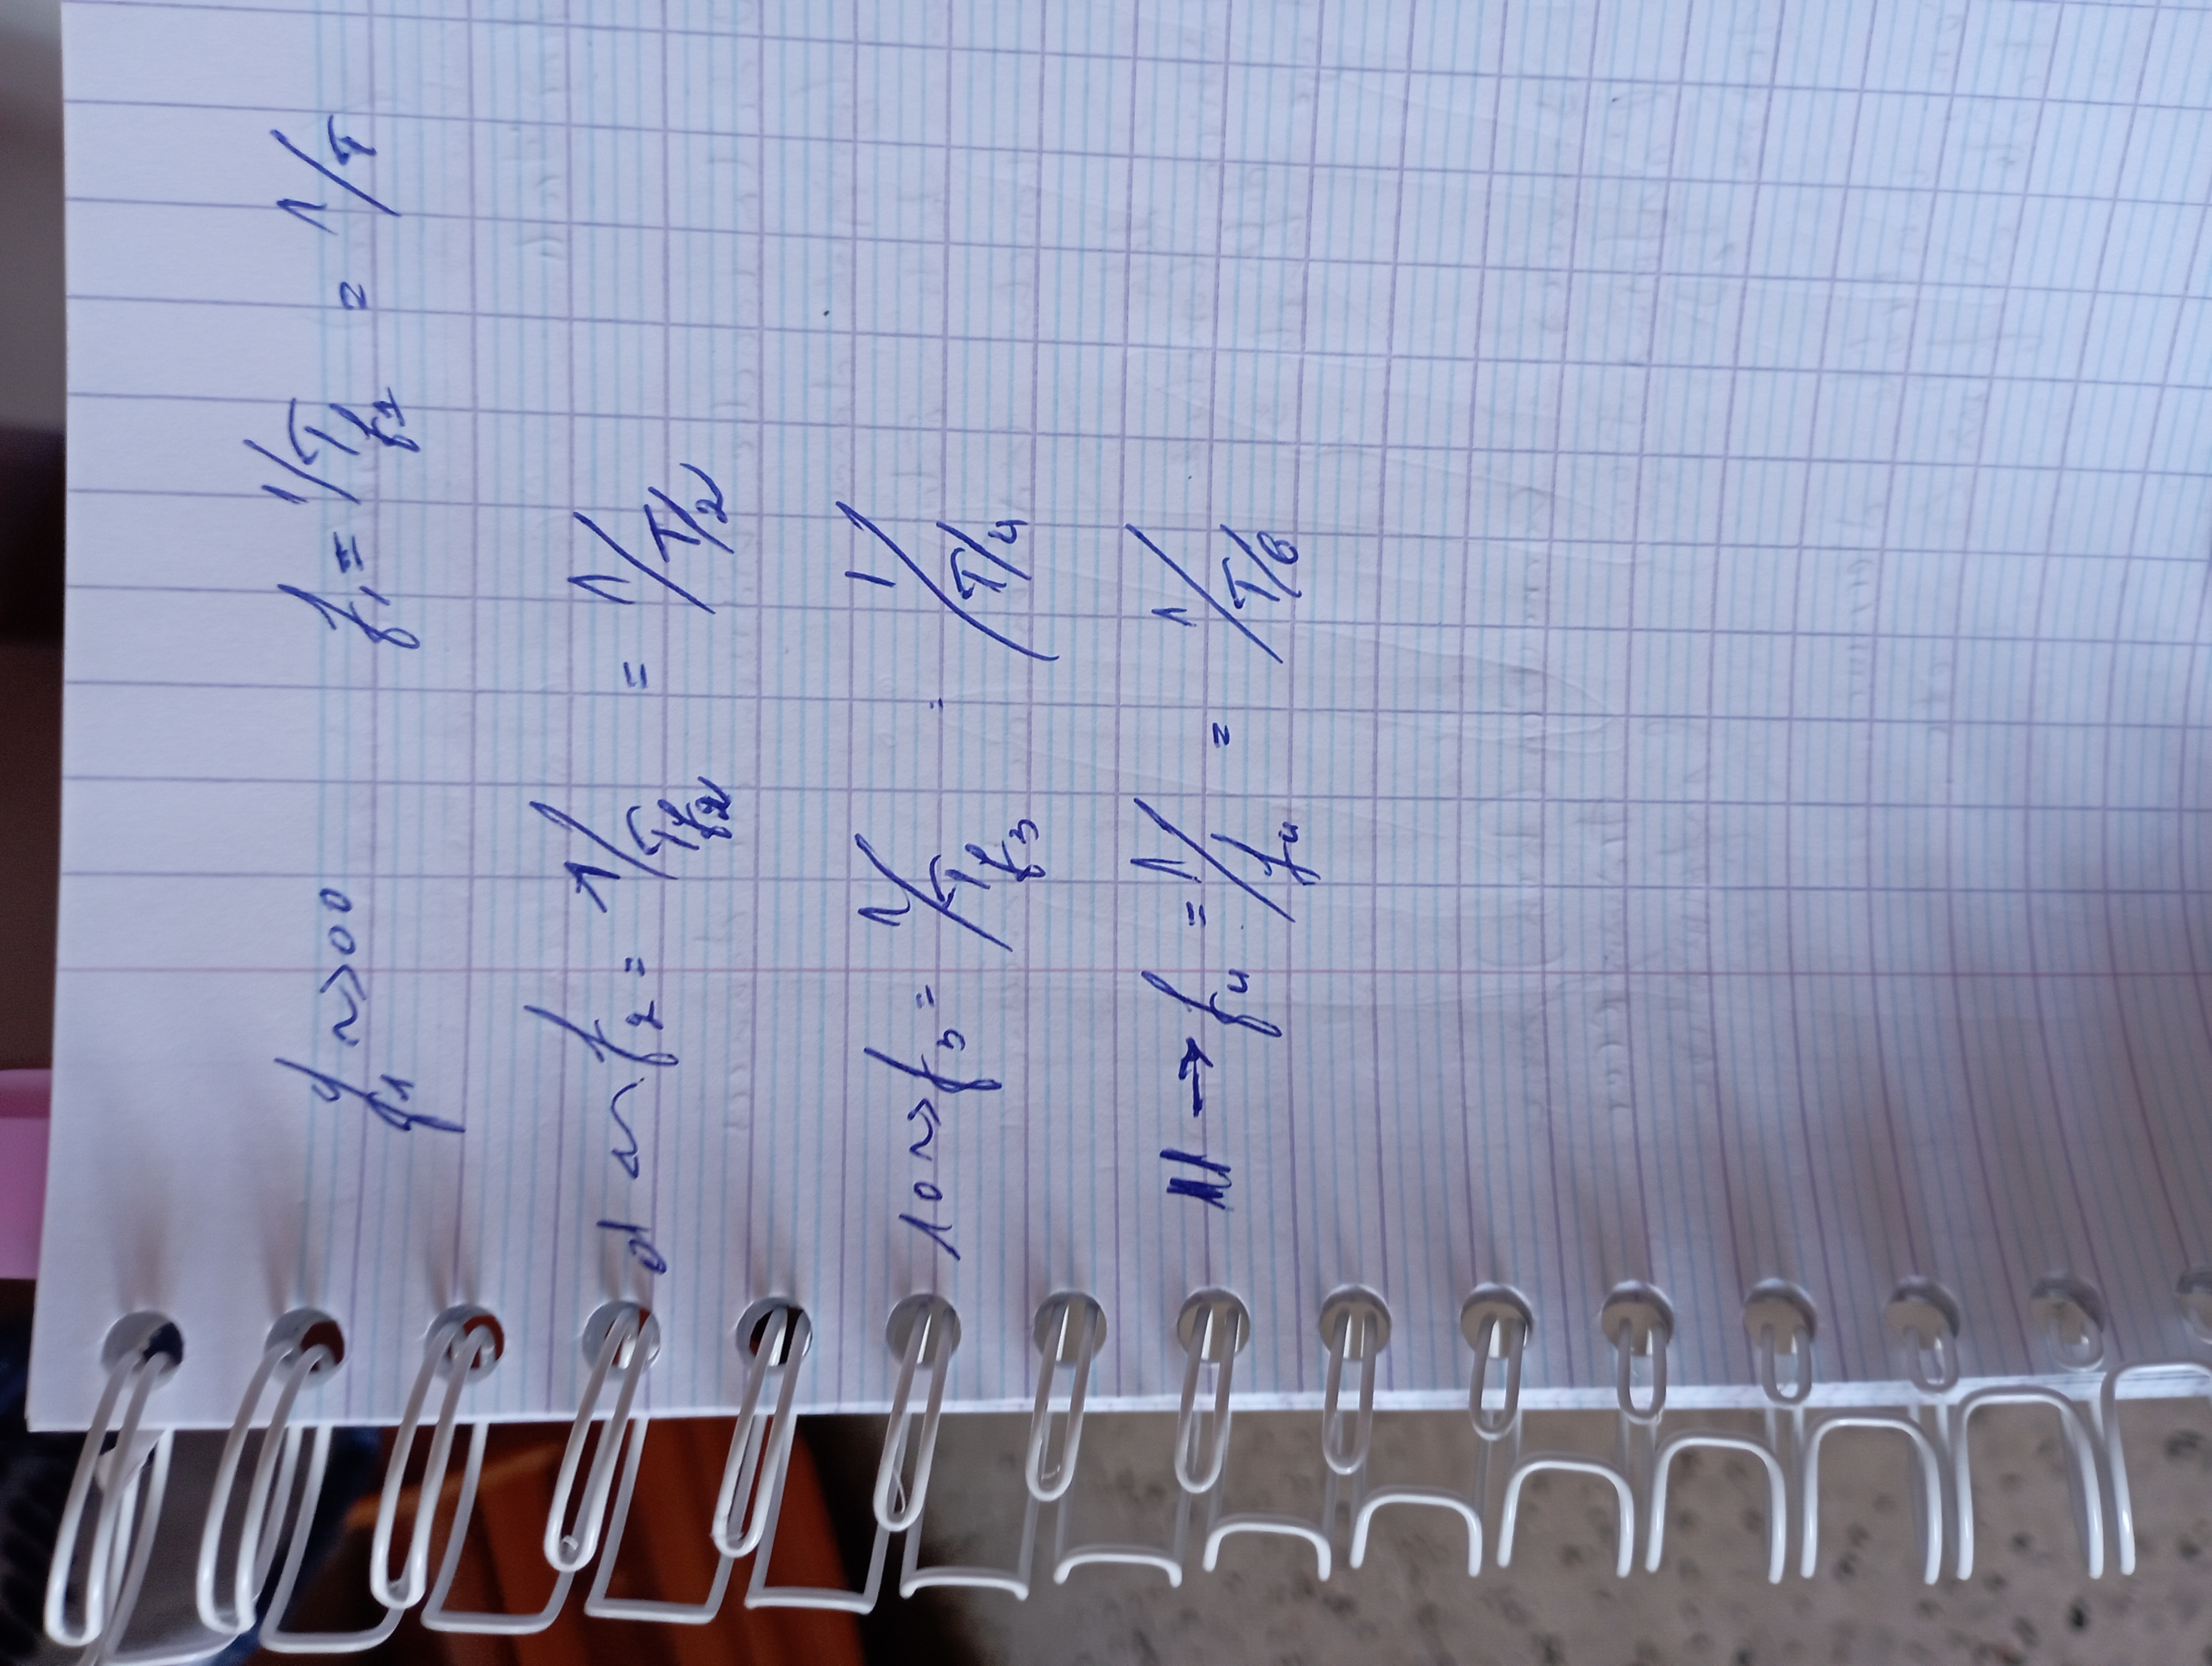 f1 ~> 00 f1 = 1/Tf1 = 1/T
01 <~ f2 = 1/Tf2 = 1/T/2
10 ~> f3 = 1/Tf3 = 1/T/4
11 → f4 = 1/f4 = 1/T/6